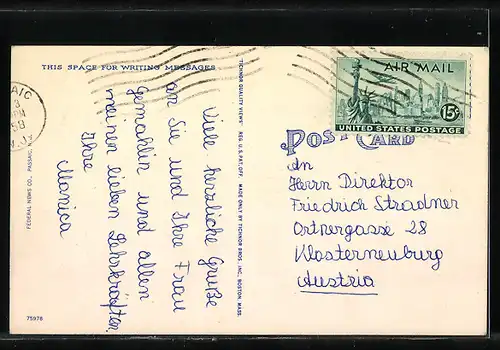 THIS SPACE FOR WRITING MESSAGES
Viele herzliche Grüße
an Sie und Ihre Frau
Gemahlin und allen
meinen lieben Lehrkräften
Ihre
Monica
FEDERAL NEWS CO., PASSAIC, N. J.
75978
"TICHNOR QUALITY VIEWS," REG. U. S. PAT. OFF. MADE ONLY BY TICHNOR BROS., INC., BOSTON, MASS.
AIC
3
PM
58
N.J.
AIR MAIL
15¢
UNITED STATES POSTAGE
POST CARD
An
Herrn Direktor
Friedrich Stradner
Ortnergasse 28
Klosterneuburg
Austria